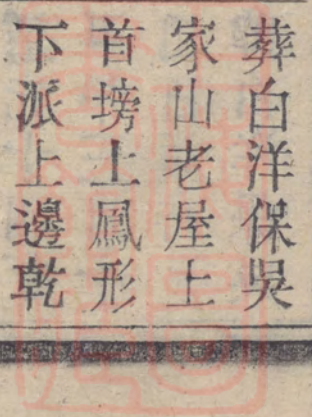 葬白洋保吳
家山老屋上
首塝上鳳形
下派上邊乾